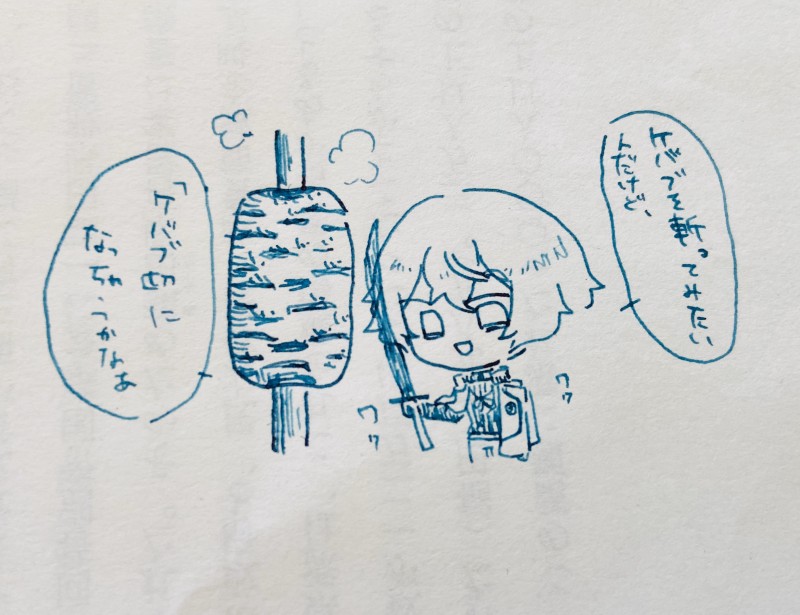 ケバブを斬ってみたい
んだけど、
ワッ
ワッ
「ケバブ切に
なっちゃうかなあ